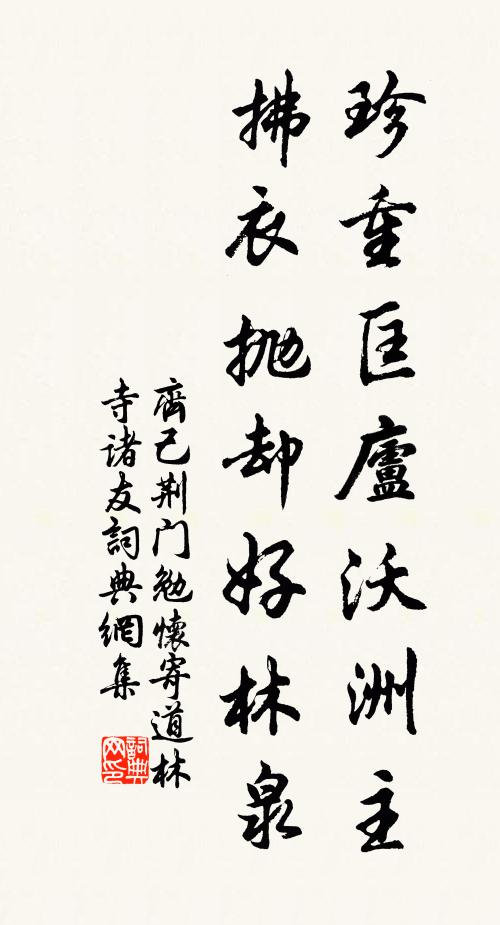 珍重匡廬沃洲主
拂衣抛却好林泉
齊己荆门勉懷寄道林
寺诸友詞典網集
詞典
网印